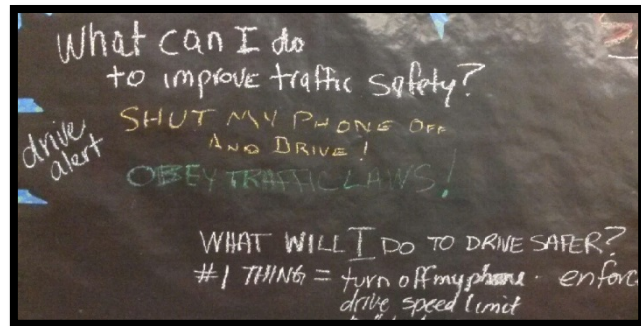 What can I do
to improve traffic safety?
SHUT MY PHONE OFF
AND DRIVE!
drive
alert
OBEY TRAFFIC LAWS!
WHAT WILL I DO TO DRIVE SAFER?
#1 THING = turn off my phone. enforc
drive speed limit